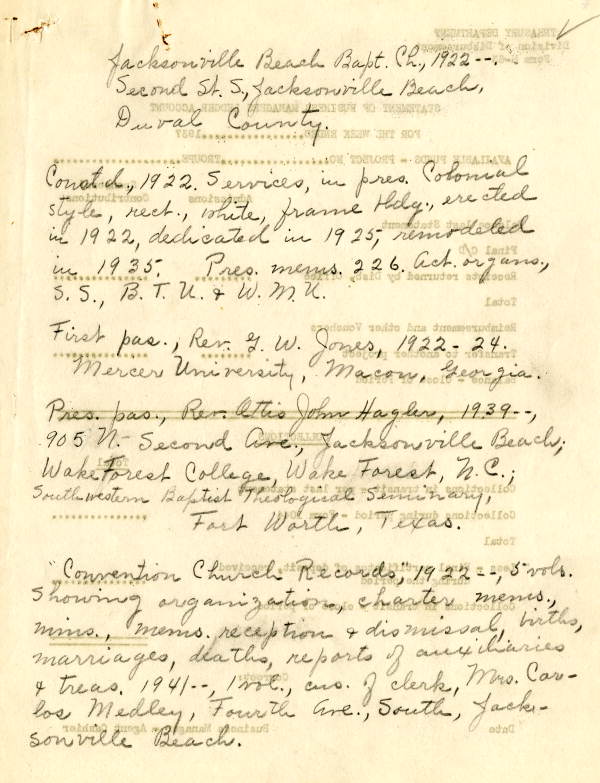 Jacksonville Beach Bapt. Ch., 1922 --.
Second St. S., Jacksonville Beach,
Duval County.
Const'd., 1922. Services, in pres. Colonial
style, rect., white, frame bldg., erected
in 1922, dedicated in 1925, remodeled
in 1935. Pres. mems. 226. Act. organs.,
S. S., B. T. U. & W. M. U.
First pas., Rev. G. W. Jones, 1922 - 24.
Mercer University, Macon, Georgia.
Pres. pas., Rev. Otis John Hagler, 1939 --,
905 N. Second Ave., Jacksonville Beach;
Wake Forest College, Wake Forest, N.C.;
Southwestern Baptist Theological Seminary,
Fort Worth, Texas.
"Convention Church Records, 1922 --, 5 vols.
Showing organization, charter mems.,
mins., mems. reception & dismissal, births,
marriages, deaths, reports of auxiliaries
& treas. 1941 --, 1 vol., cus. of clerk, Mrs. Car-
los Medley, Fourth Ave., South, Jack-
sonville Beach.